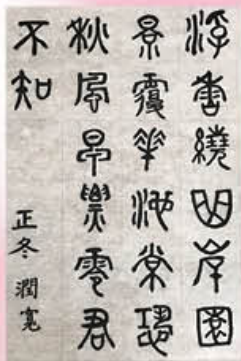 浮香繞曲岸圓
景覆華池常恐
秋風早飄零君
不知
正冬 潤寬